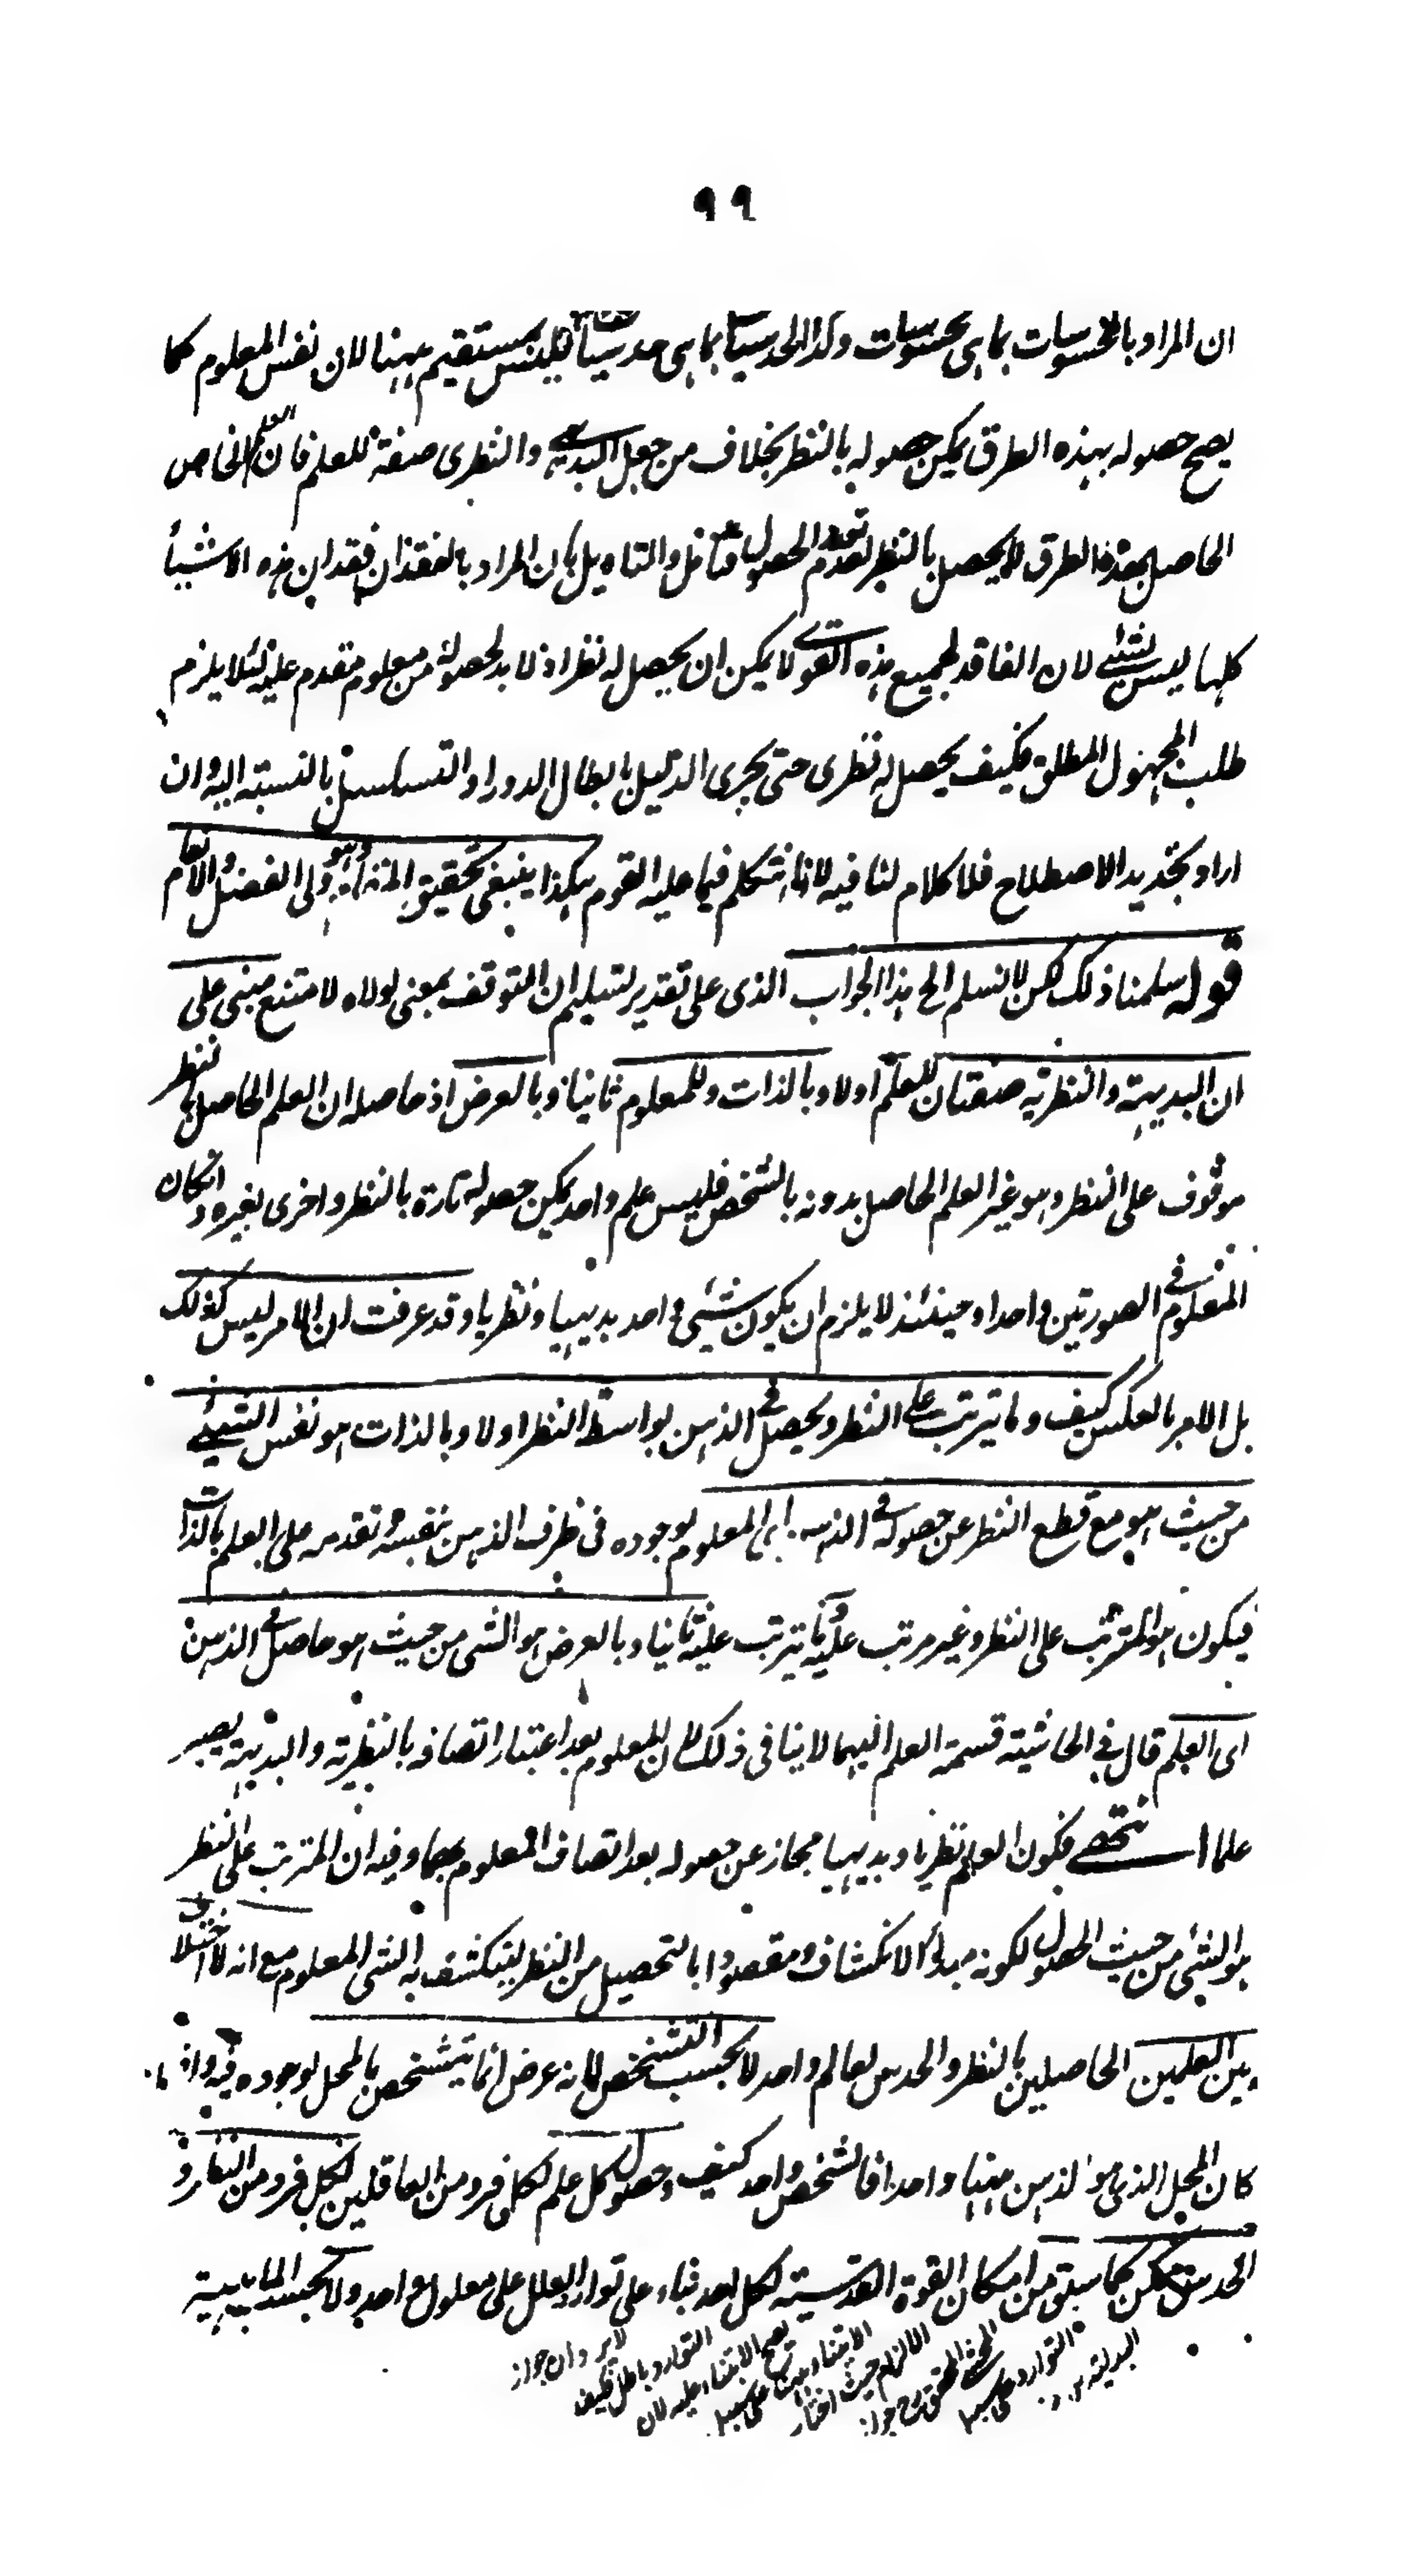 ٩٩
ان المراد بالمحسوسات بما هى محسوسات وكذا الحدسيات بما هى حدسيات فليس بمستقيم ههنا لان نفس المعلوم كما
يصح حصوله بهذه الطرق يمكن حصوله بالنظر بخلاف من جعل البديهى والنظرى صفة للعلم فان العلم الخاص
الحاصل بهذه الطرق لا يحصل بالنظر لعدم تعدد الحصول فتأمل والتاويل بان المراد بالفقدان فقدان هذه الاشياء
كلها ليس بشئ لان الفاقد لجميع هذه القوى لا يمكن ان يحصل له نظر اذ لا بد لحصوله من معلوم متقدم عليه لئلا يلزم
طلب المجهول المطلق فكيف يحصل له نظرى حتى يجرى الدليل بابطال الدور او التسلسل بالنسبة اليه وان
اراد تجديد الاصطلاح فلا كلام لنا فيه لانا نتكلم فيما عليه القوم هكذا ينبغى تحقيق المقام وهو ولى الفضل والانعام
قوله سلمنا ذلك لكن لا نسلم الخ هذا الجواب الذى على تقدير تسليم ان التوقف بمعنى لولاه لامتنع مبنى على
ان البديهية والنظرية صفتان للعلم اولا وبالذات وللمعلوم ثانيا وبالعرض اذ حاصله ان العلم الحاصل بالنظر
موقوف على النظر وهو غير العلم الحاصل بدونه بالشخص فليس علم واحد يمكن حصوله تارة بالنظر واخرى بغيره وان كان
المعلوم فى الصورتين واحدا وحينئذ لا يلزم ان يكون شئ واحد بديهيا ونظريا وقد عرفت ان الامر ليس كذلك
بل الامر بالعكس كيف وما يترتب على النظر ويحصل فى الذهن بواسطة النظر اولا وبالذات هو نفس الشئ
من حيث هو مع قطع النظر عن حصوله فى الذهن اى المعلوم لوجوده فى ظرف الذهن بنفسه وتقدمه على العلم بالذات
فيكون هو المترتب على النظر وغير مرتب عليه وما يترتب عليه ثانيا وبالعرض هو الشئ من حيث هو حاصل فى الذهن
اى العلم قال فى الحاشية قسمة العلم اليهما لا ينافى ذلك لان المعلوم بعد اعتبار اتصافه بالنظرية والبديهية يصير
علما انتهى فكون العلم نظريا وبديهيا مجاز عن حصوله بعد اتصاف المعلوم بهما وفيه ان المترتب على النظر
هو الشئ من حيث الحصول لكونه مبدأ الانكشاف ومقصودا بالتحصيل من النظر لينكشف به الشئ المعلوم مع انه لا اختلاف
بين العلمين الحاصلين بالنظر والحدس لعالم واحد لا بحسب التشخص لانه عرض انما يتشخص بالمحل لوجوده فيه واذا
كان المحل الذى هو الذهن ههنا واحدا فالشخص واحد كيف وحصول كل علم لكل فرد من العاقلين لكل فرد من النظر و
الحدس ممكن كما سبق من امكان القوة القدسية لكل احد بناء على توارد العلل على معلول واحد ولا بحسب الماهية
لا يرد ان جواز
التوارد باطل فكيف
يصح الابتناء عليه لان